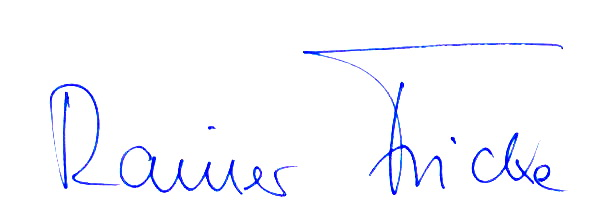 Rainer Fricke